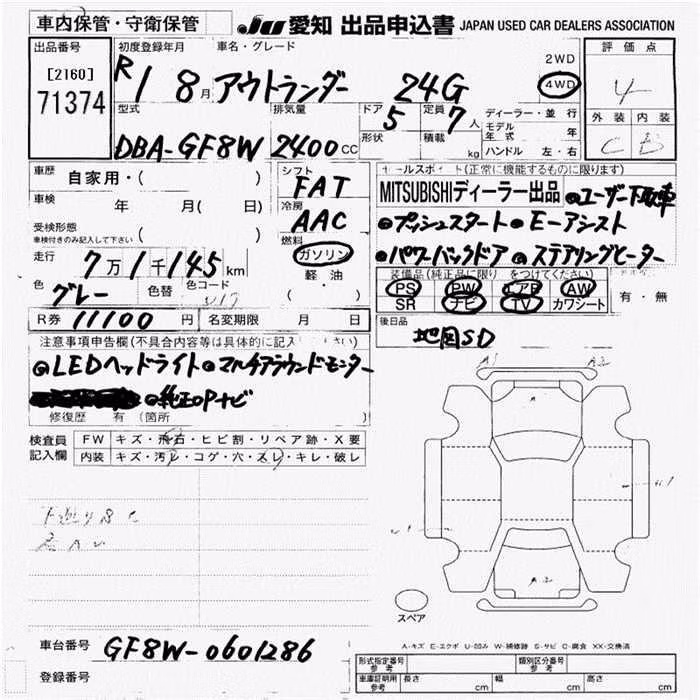 車内保管・守衛保管 JU 愛知 出品申込書 JAPAN USED CAR DEALERS ASSOCIATION
出品番号 初度登録年月 車名・グレード 2WD 評価点
[2160] R1 8月 アウトランダー 24G 4WD 4
71374 型式 排気量 ドア 5 定員 7人 ディーラー・並行 外装 内装
形状 積載 kg モデル年式 年 C B
DBA-GF8W 2400cc ハンドル 左・右
車歴 自家用・( ) シフト FAT セールスポイント(正常に機能するものに限ります)
車検 年 月( 日) 冷房 AAC MITSUBISHIディーラー出品 ●ユーザー下取車
受検形態 ( ) ●プッシュスタート ●E-アシスト
車検付きのみ記入して下さい 燃料
走行 7万1千145km ガソリン ●パワーバックドア ●ステアリングヒーター
色 グレー 色替 色コード 軽油 装備品(純正品に限り○をつけてください)
( ) PS PW エアB AW 有・無
R券 11100円 名変期限 月 日 SR ナビ TV カワシート
注意事項申告欄(不具合内容等は具体的に記入して下さい) 後日品 地図SD
●LEDヘッドライト ●マルチアラウンドモニター A1 A2
●純正OPナビ A
修復歴 有(箇所 )
検査員 FW キズ・飛石・ヒビ割・リペア跡・X要
記入欄 内装 キズ・汚レ・コゲ・穴・スレ・キレ・破レ
A2
スペア
車台番号 GF8W-0601286 A-キズ E-エクボ U-凹み W-補修跡 S-サビ C-腐食 XX-交換済
形式指定番号 参考 類別区分番号 参考
登録番号 車庫証明用 参考 長さ cm 幅 cm 高さ cm